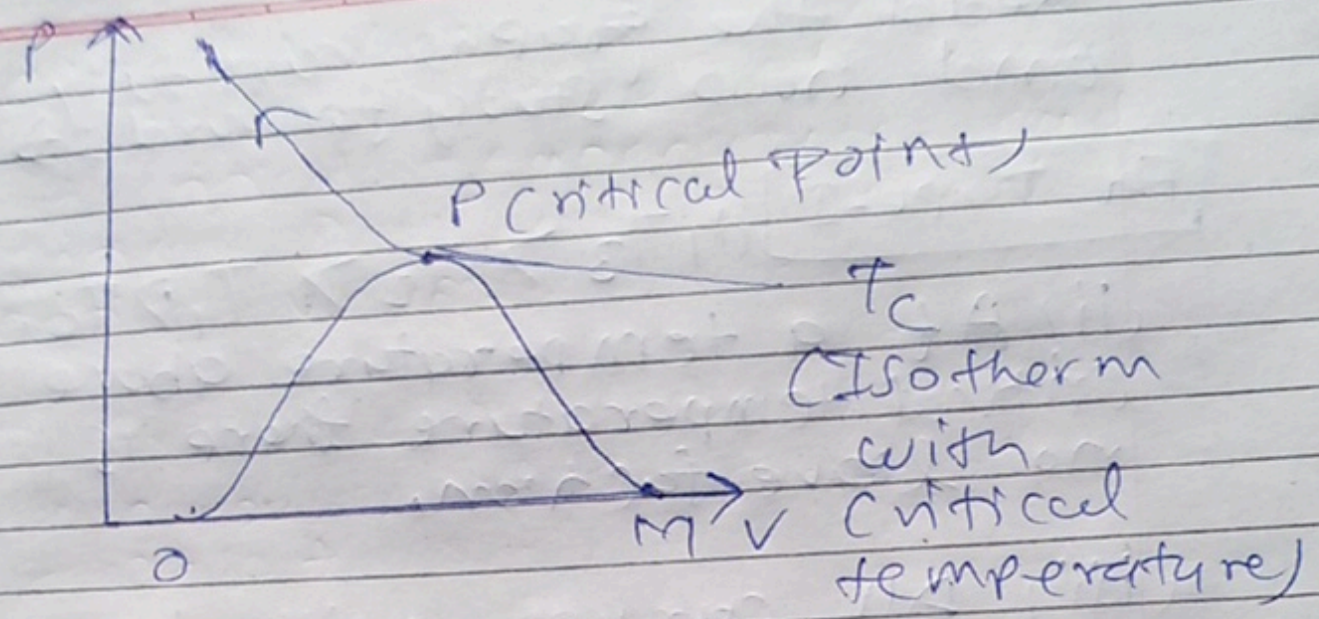 P
P (Critical Point)
Tc
(Isotherm
with
Critical
temperature)
O
M
V